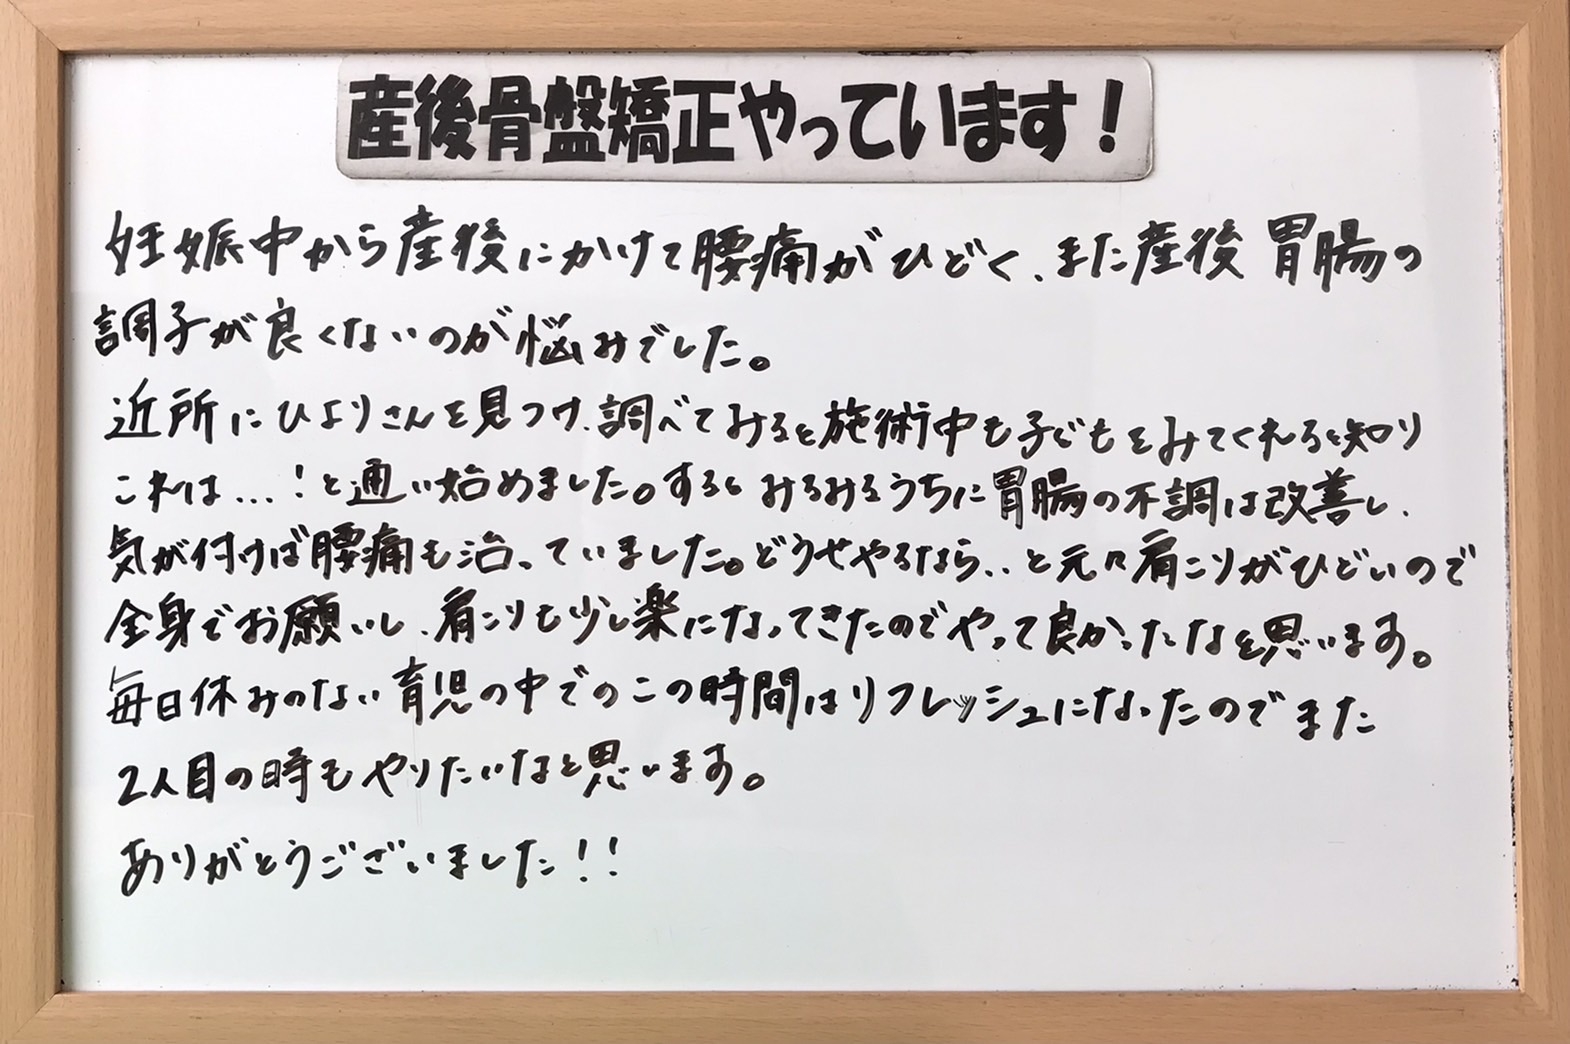 産後骨盤矯正やっています！
妊娠中から産後にかけて腰痛がひどく、また産後 胃腸の
調子が良くないのが悩みでした。
近所にひよりさんを見つけ、調べてみると施術中も子どもをみてくれると知り
これは…！と通い始めました。するとみるみるうちに胃腸の不調は改善し、
気が付けば腰痛も治っていました。どうせやるなら‥と元々肩こりがひどいので
全身でお願いし、肩こりも少し楽になってきたのでやって良かったなと思います。
毎日休みのない育児の中でのこの時間はリフレッシュになったのでまた
2人目の時もやりたいなと思います。
ありがとうございました！！